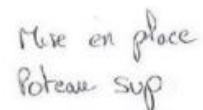 Mise en place
Poteau sup